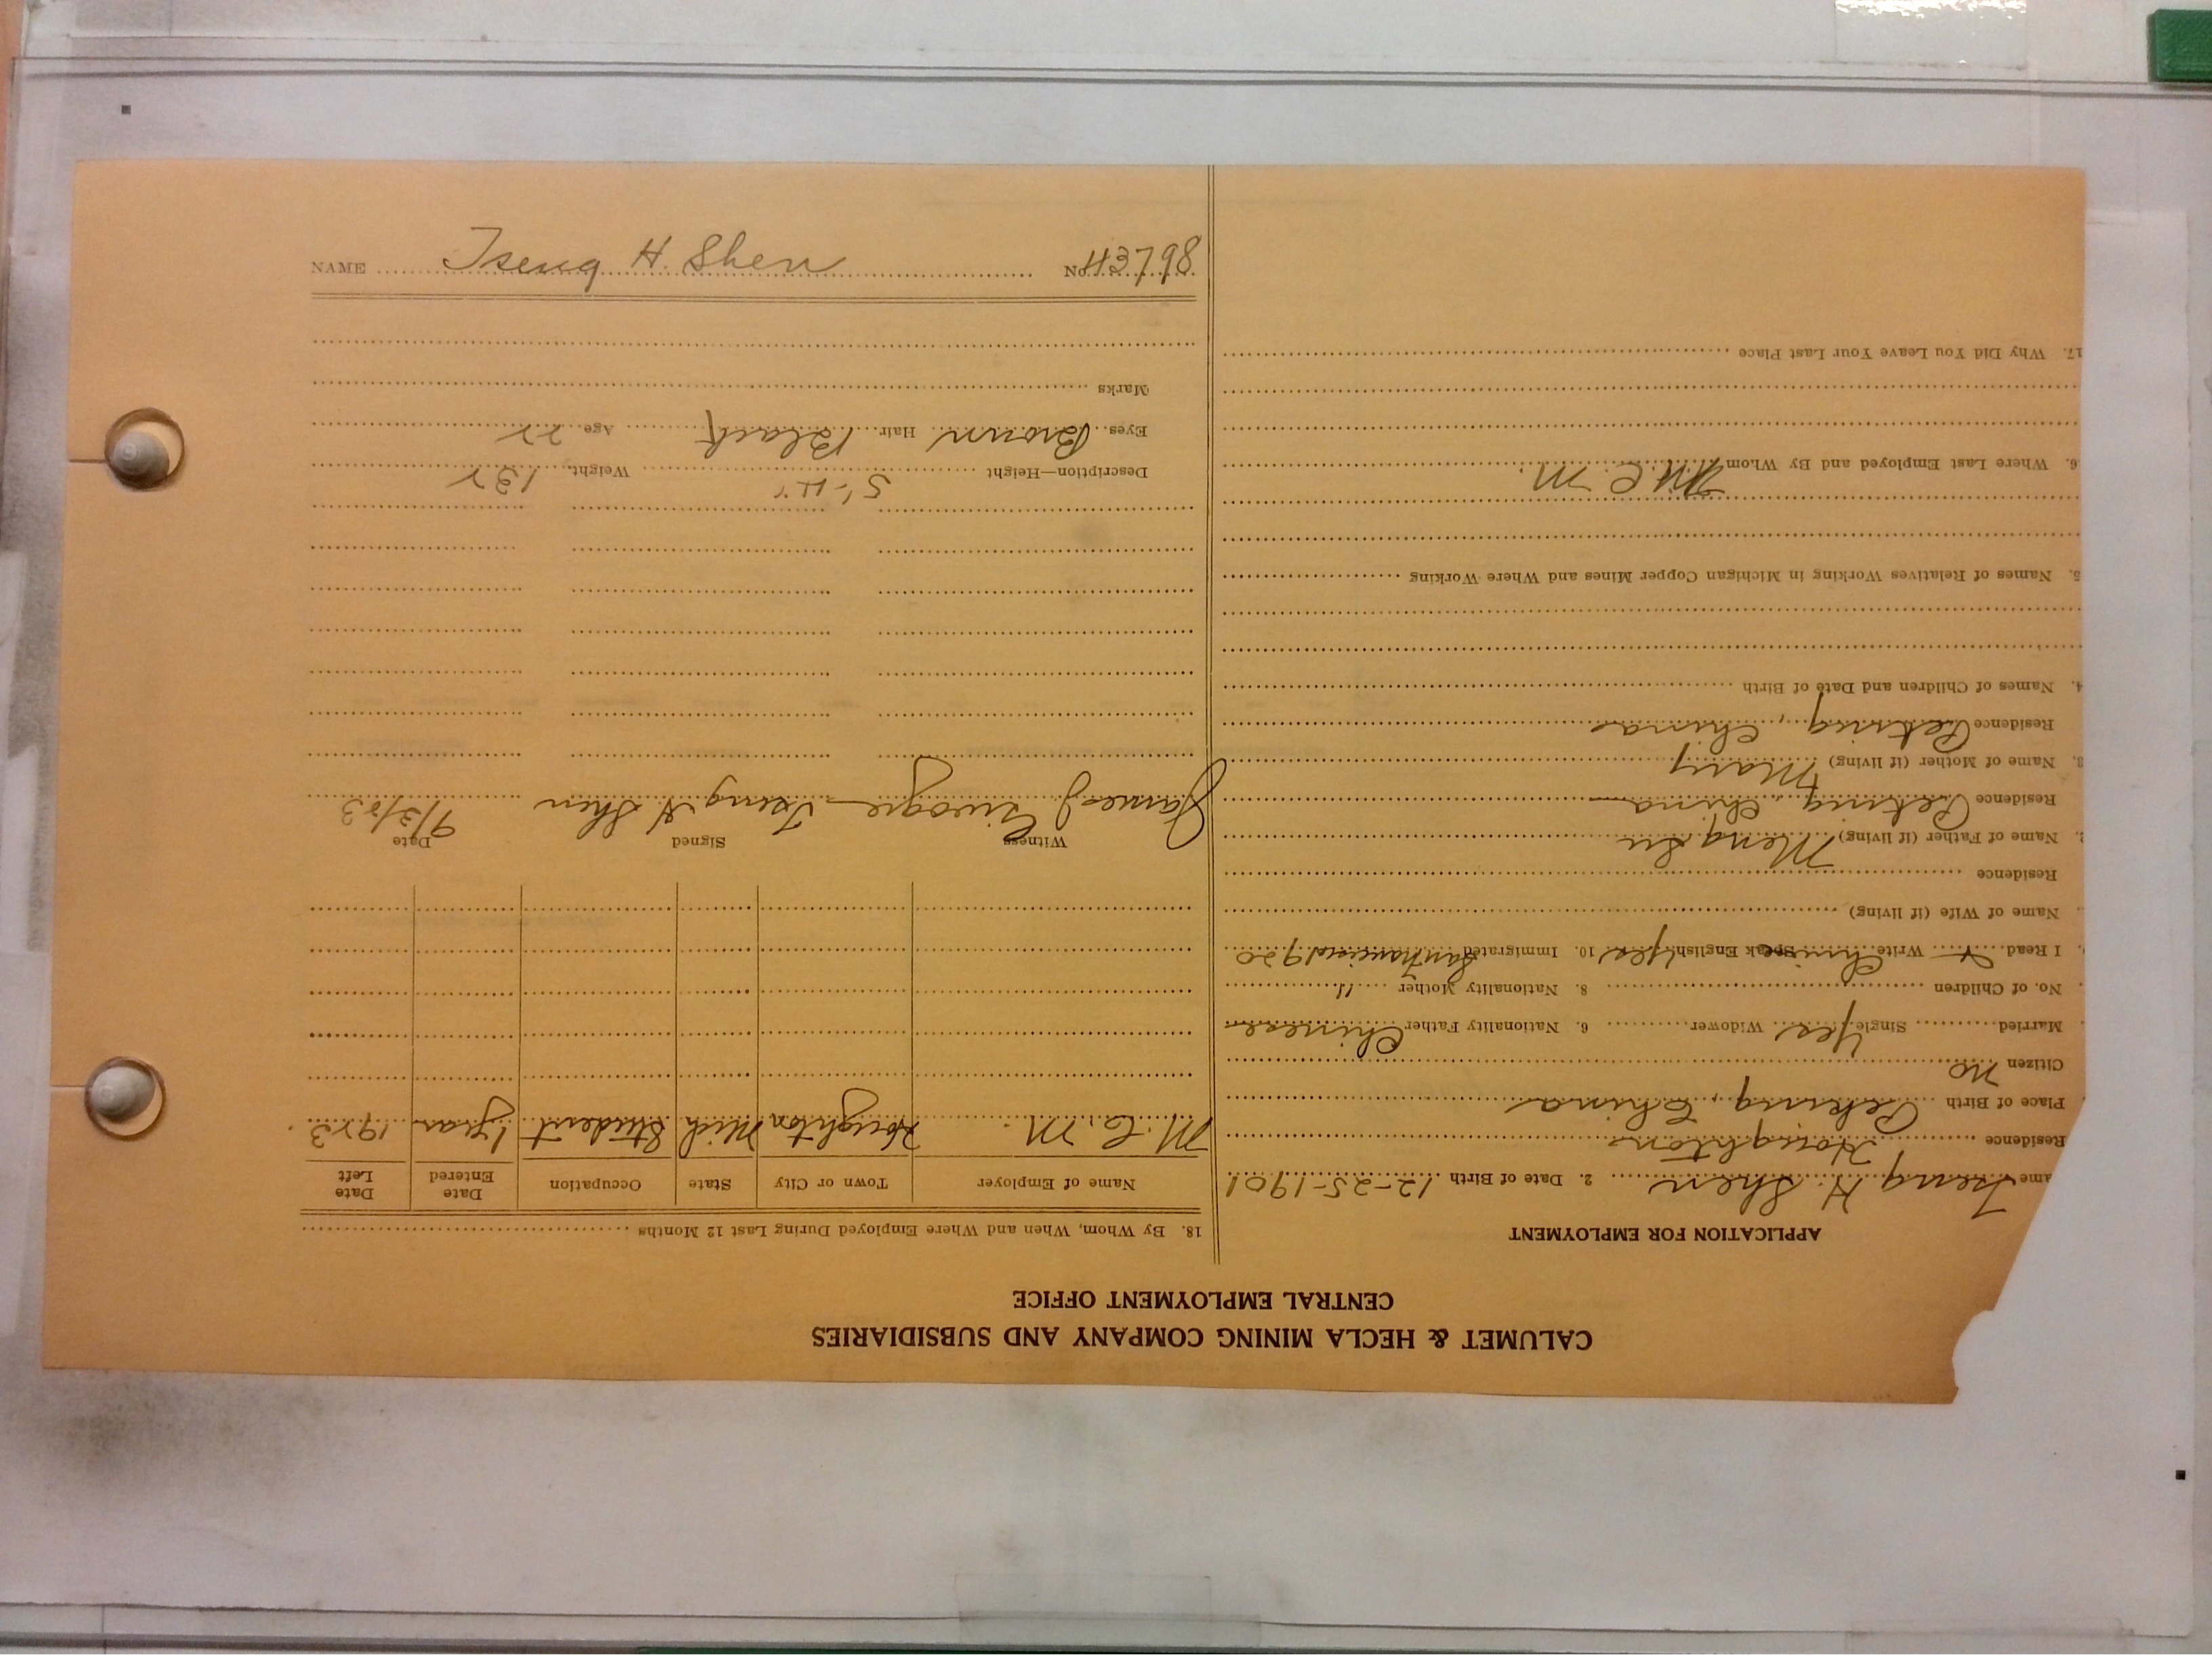 CALUMET & HECLA MINING COMPANY AND SUBSIDIARIES
CENTRAL EMPLOYMENT OFFICE
APPLICATION FOR EMPLOYMENT
ame Tseng H. Shen 2. Date of Birth 12-25-1901
Residence Houghton
Place of Birth Peking, China
Citizen No
Married Single Yes Widower 6. Nationality Father Chinese
No. of Children 8. Nationality Mother "
I Read Write Speak English Yes 10. Immigrated San Francisco 1920
Name of Wife (if living)
Residence
Name of Father (if living) Meng Su
Residence Peking, China
3. Name of Mother (if living) Mary
Residence Peking, China
4. Names of Children and Date of Birth
5. Names of Relatives Working in Michigan Copper Mines and Where Working
6. Where Last Employed and By Whom M. C. M.
17. Why Did You Leave Your Last Place
18. By Whom, When and Where Employed During Last 12 Months
Name of Employer Town or City State Occupation Date Entered Date Left
M. C. M. Houghton Mich Student 1 year 1923
Witness Signed Date
James Tseng H Shen 9/3/23
Description—Height 5'-4" Weight 132
Eyes Brown Hair Black Age 22
Marks
NAME Tseng H. Shen No. 43798